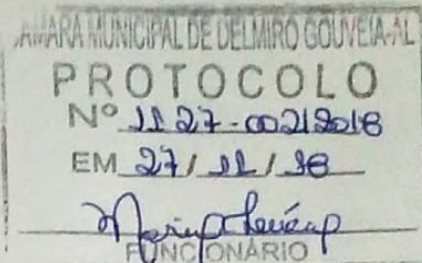 CÂMARA MUNICIPAL DE DELMIRO GOUVEIA-AL
PROTOCOLO
Nº 1127-002/2018
EM 27/11/18
FUNCIONÁRIO